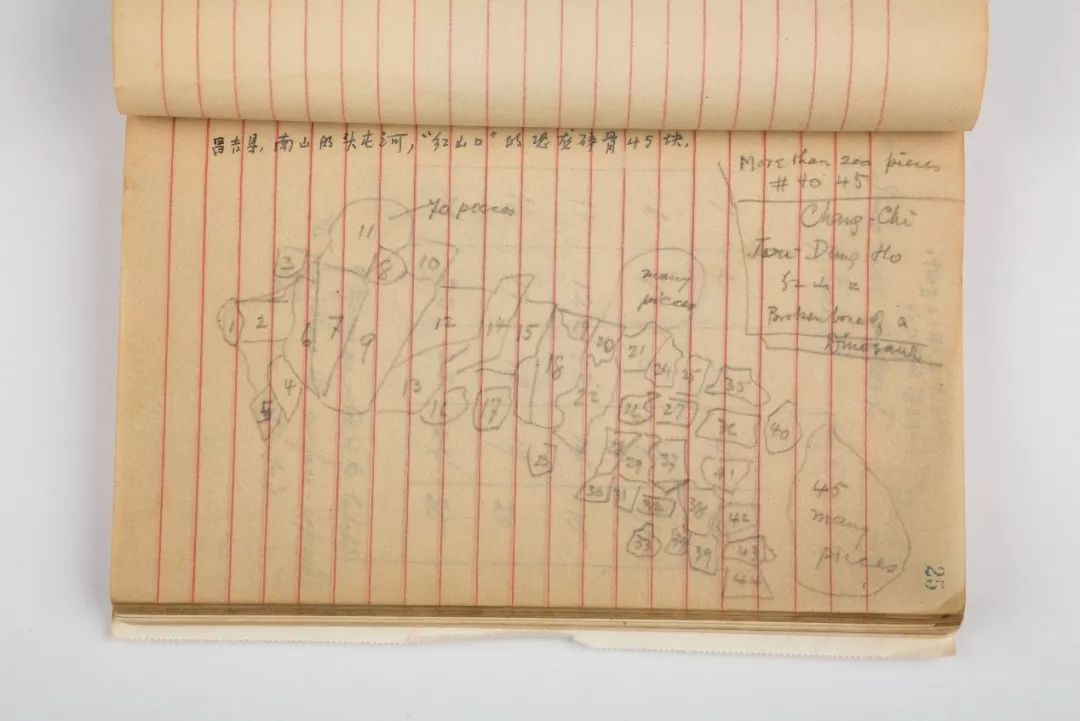 昌吉县,南山的头屯河,“红山口”的恐龙碎骨45块.
More than 200 pieces
# to 45
Chang-Chi
Tou-Dung Ho
红山口
Broken bone of a
Dinosaur
70 pieces
11
3
8
10
many
pieces
1
2
6
7
9
12
14
15
18
19
20
21
24
25
35
4
5
13
16
17
22
27
36
40
23
29
37
41
30
31
32
38
42
33
39
43
44
45
many
pieces
25